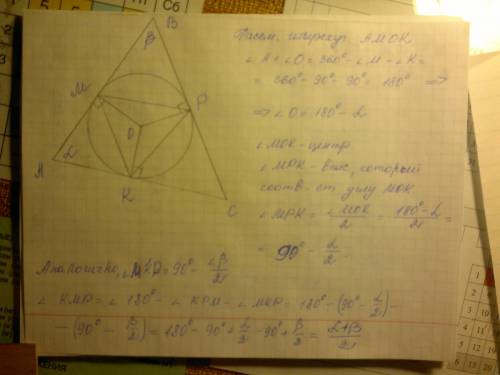 B
β
M
P
O
A
α
K
C
Рассм. четырехуг. AMOK.
∠A + ∠O = 360° - ∠M - ∠K =
= 360° - 90° - 90° = 180° =>
=> ∠O = 180° - α
∠MOK - центр.
∠MPK - впис, который
соотв-ет углу MOK.
∠MPK = ∠MOK/2 = (180° - α)/2 =
= 90° - α/2.
Аналогично, ∠MKP = 90° - β/2
∠KMP = ∠180° - ∠KPM - ∠MKP = 180° - (90° - α/2) -
- (90° - β/2) = 180° - 90° + α/2 - 90° + β/2 = (α+β)/2
Сб